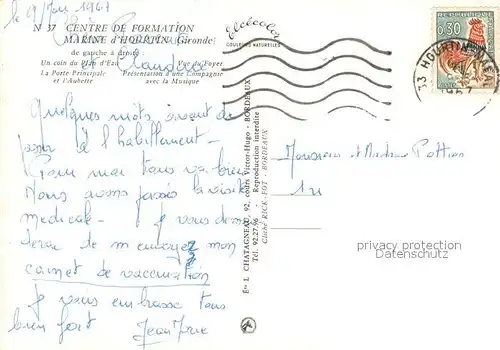 le 9/Jan 1967
N 37 CENTRE DE FORMATION
MARINE d'HOURTIN (Gironde)
de gauche à droite :
Un coin du Plan d'Eau Vue du Foyer
La Porte Principale Présentation d'une Compagnie
et l'Aubette avec la Musique
et Claudine
Quelques mots avant de
à l'habillement -
Pour moi tous va bien
Nous avons passés la visite
medicale - Je vous deman
derai de m'envoyez mon
carnet de vaccination
Je vous embrasse tous
bien fort
Elcécolor
COULEURS NATURELLES
Éts L. CHATAGNEAU, 92, cours Victor-Hugo - BORDEAUX
Tél. 92.27.96 - Reproduction Interdite
Cliché RICK-FOT - BORDEAUX
0,30
33 HOURTIN
Monsieur et Madame
privacy protection
Datenschutz